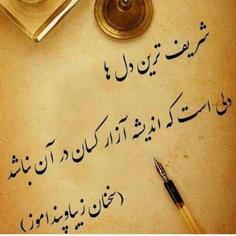 شریف ترین دل ها
دلی است که اندیشه آزار کسان در آن نباشد
(سخنان زیبا و پندآموز)